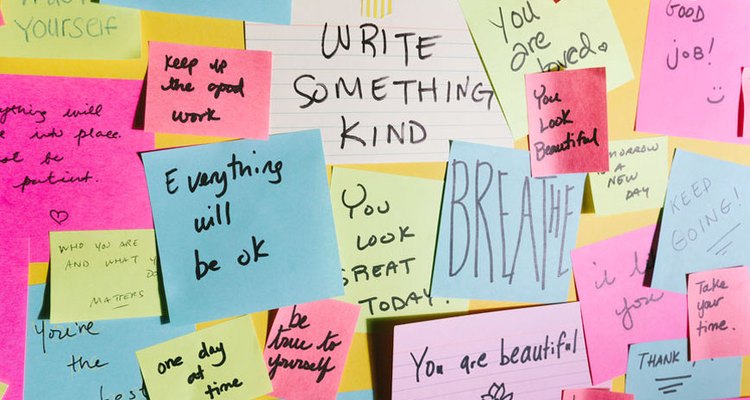 Trust
Yourself
Keep up
the good
work
WRITE
SOMETHING
KIND
You
are
loved.
GOOD
JOB!
You
Look
Beautiful
everything will
into place.
must be
patient.
Everything
will
be ok
YOU
LOOK
GREAT
TODAY.
BREATHE
TOMORROW
IS A
NEW
DAY
KEEP
GOING!
WHO YOU ARE
AND WHAT YOU
DO
MATTERS
i
you
Take
your
time.
You're
the
best
one day
at a
time
be
true to
yourself
You are beautiful
THANK